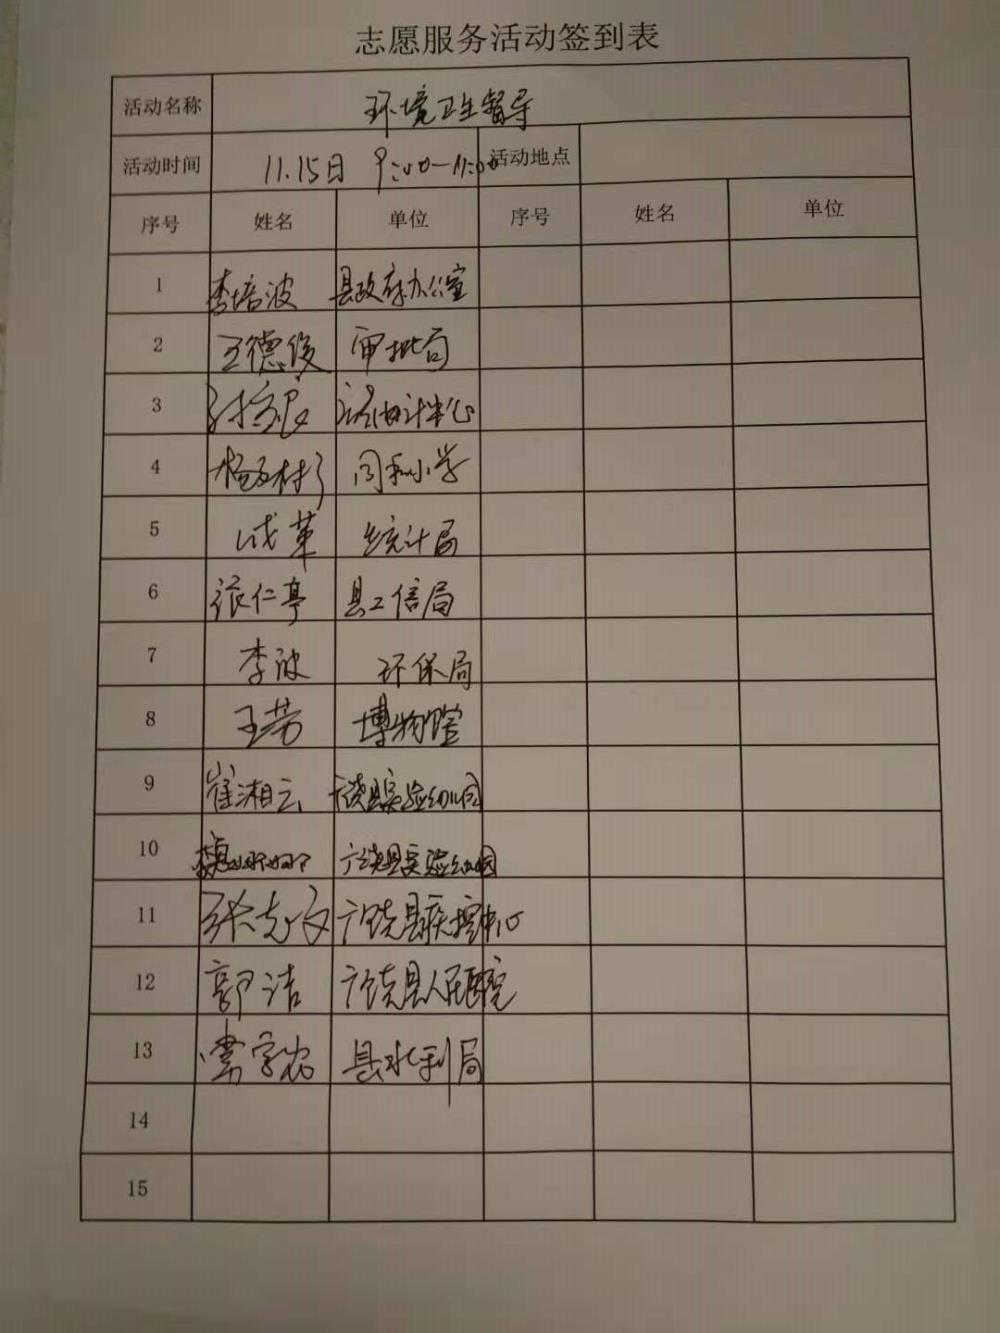 志愿服务活动签到表
活动名称 环境卫生督导
活动时间 11.15日 9:00-11:00 活动地点
序号 姓名 单位 序号 姓名 单位
1 李培波 县政府办公室
2 王德俊 审批局
3 中心
4 同和小学
5 成革 统计局
6 张仁亭 县工信局
7 李波 环保局
8 王芳 博物馆
9 崔湘云 广饶县实验幼儿园
10 广饶县实验幼儿园
11 张志文 广饶县疾控中心
12 郭洁 广饶县人民医院
13 县水利局
14
15